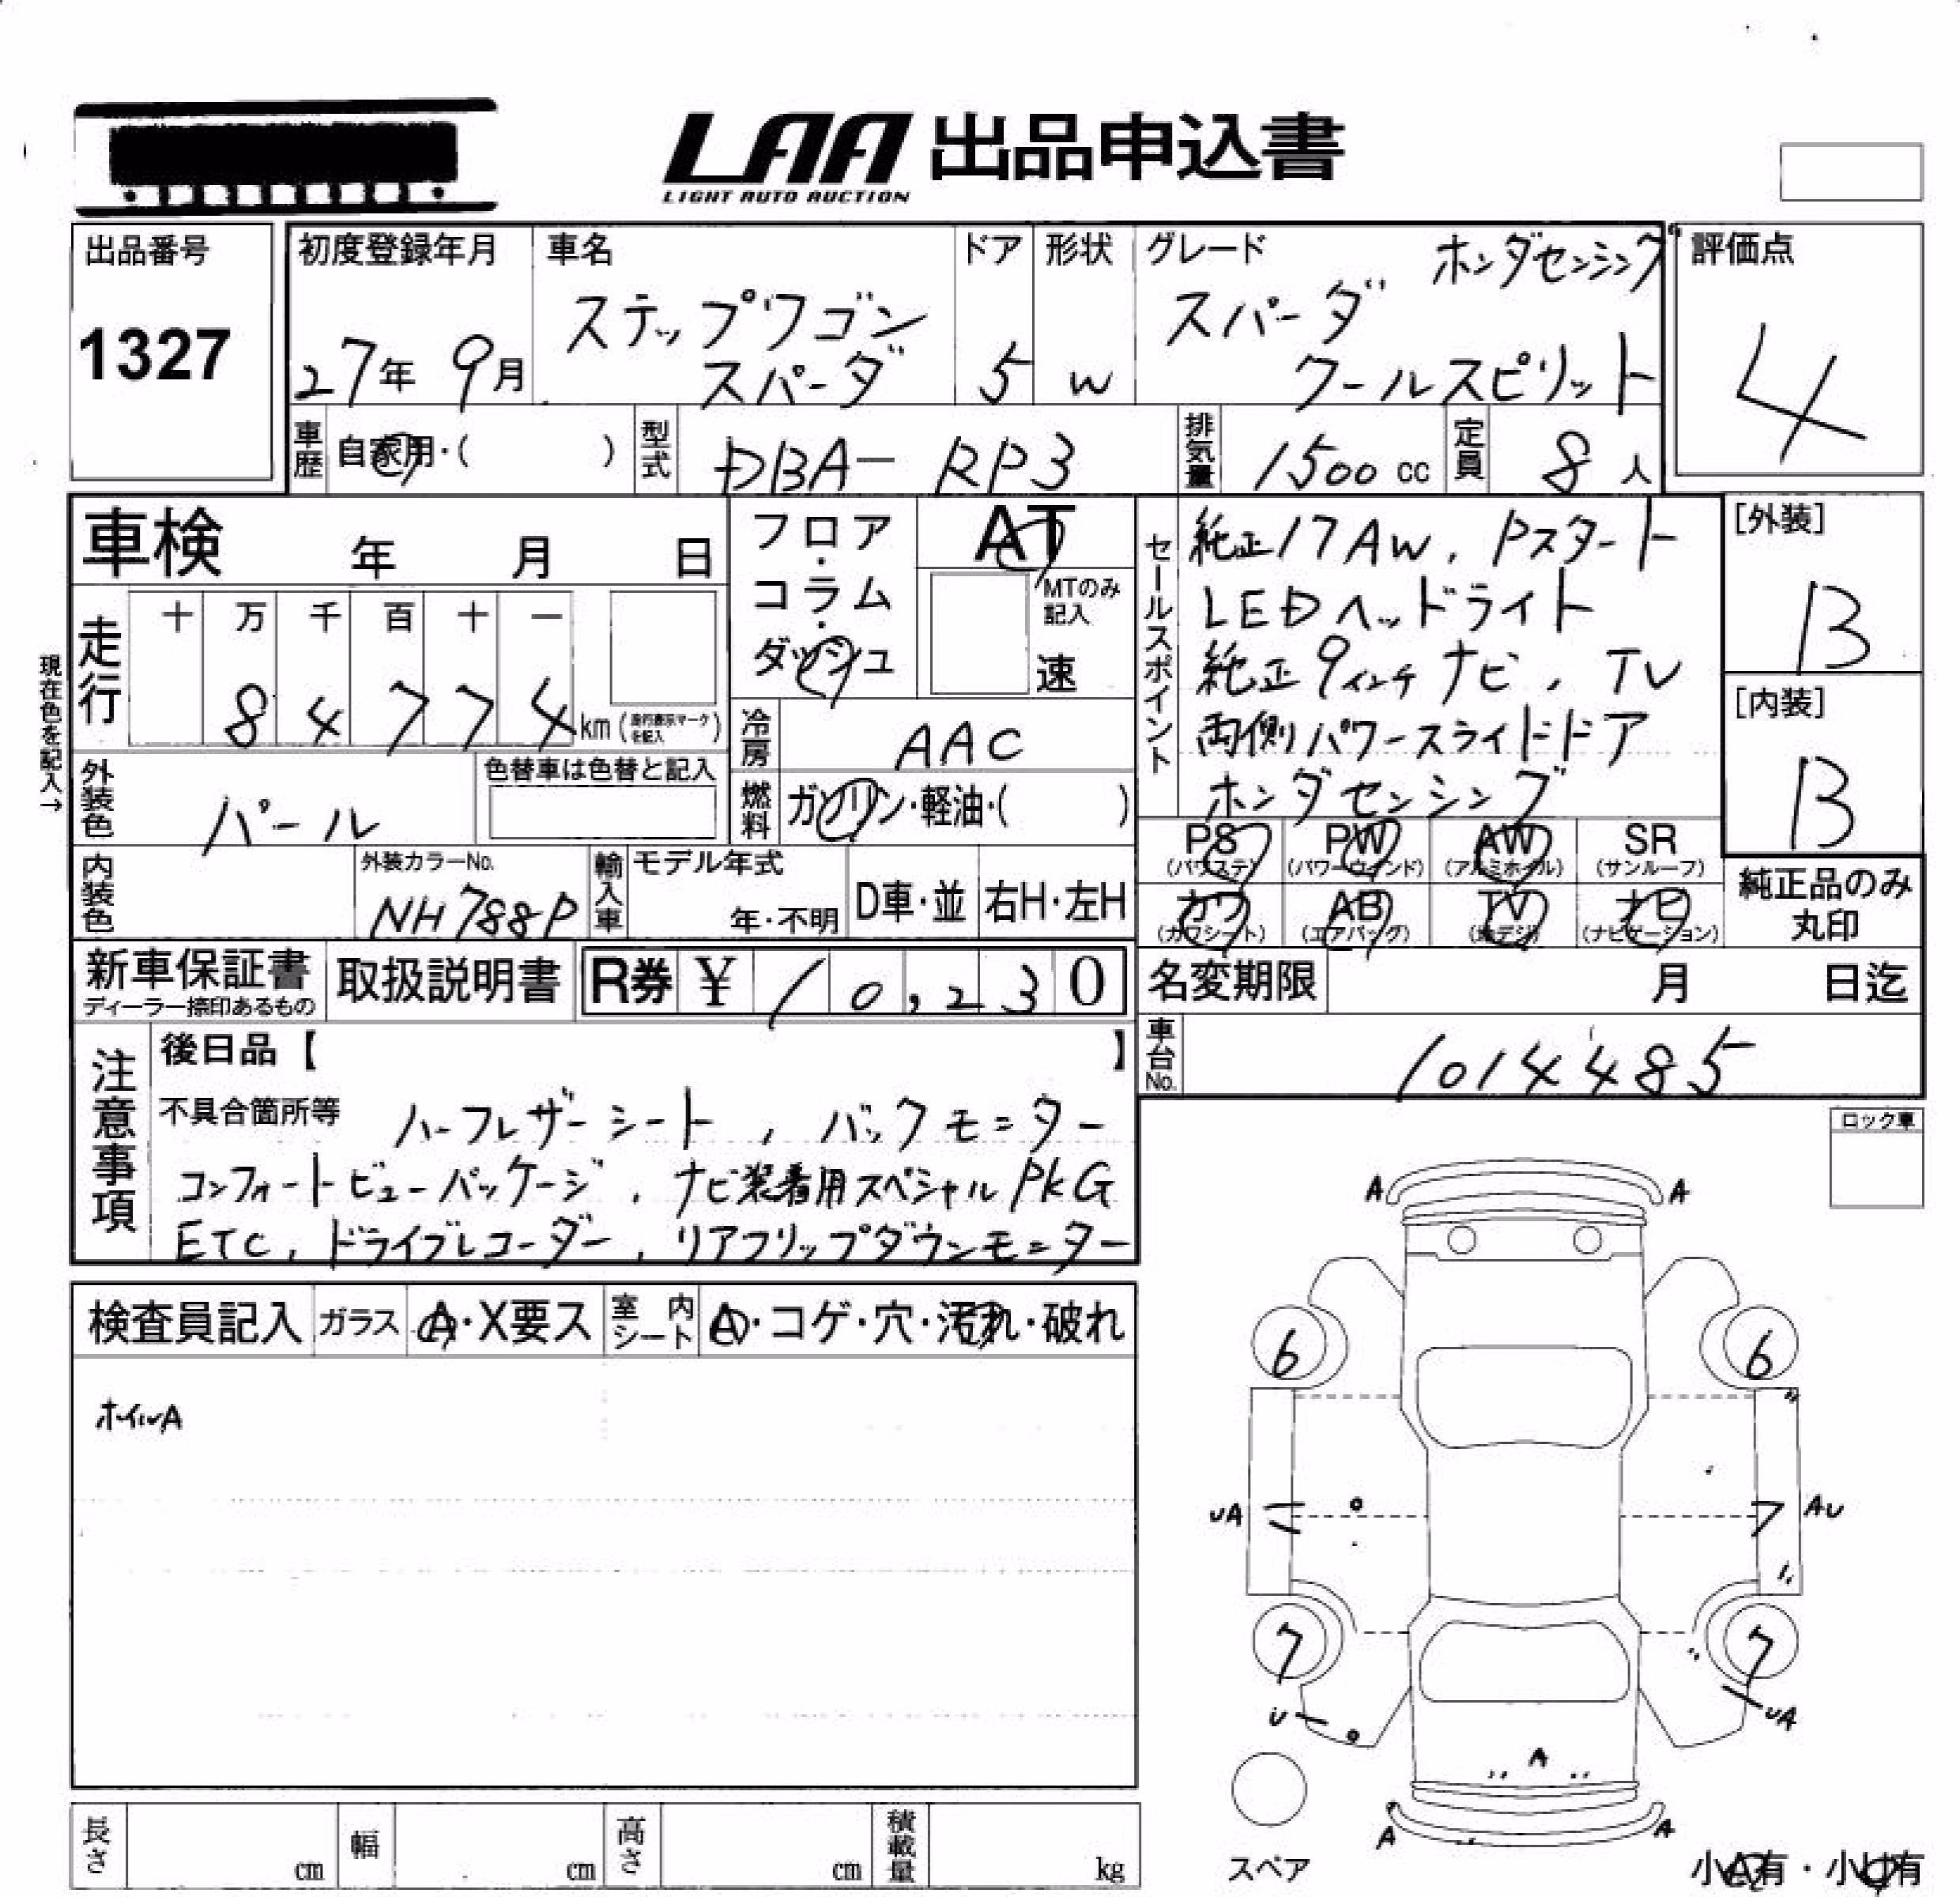 LAA 出品申込書
LIGHT AUTO AUCTION
出品番号
1327
初度登録年月
27年 9月
車名
ステップワゴン
スパーダ
ドア
5
形状
W
グレード
ホンダセンシング
スパーダ
クールスピリット
評価点
4
車歴
自家用・( )
型式
DBA- RP3
排気量
1500 cc
定員
8 人
車検 年 月 日
フロア・コラム・ダッシュ
AT
MTのみ記入
速
セールスポイント
純正17AW, Pスタート
LEDヘッドライト
純正9インチナビ, TV
両側パワースライドドア
ホンダセンシング
[外装]
B
[内装]
B
現在色を記入→
走行
十 万 千 百 十 一
8 4 7 7 4 km (走行表示マークを記入)
冷房
AAC
外装色
パール
色替車は色替と記入
燃料
ガソリン・軽油・( )
PS (パワステ)
PW (パワーウインド)
AW (アルミホイル)
SR (サンルーフ)
カワ (カワシート)
AB (エアバッグ)
TV (地デジ)
ナビ (ナビゲーション)
純正品のみ
丸印
内装色
外装カラーNo.
NH788P
輸入車
モデル年式
年・不明
D車・並
右H・左H
新車保証書
ディーラー捺印あるもの
取扱説明書
R券 ¥ 10,230
名変期限 月 日迄
車台No.
1014485
注意事項
後日品【 】
不具合箇所等 ハーフレザーシート, バックモニター
コンフォートビューパッケージ, ナビ装着用スペシャルPKG
ETC, ドライブレコーダー, リアフリップダウンモニター
ロック車
検査員記入
ガラス
A・X要ス
室内シート
A・コゲ・穴・汚れ・破れ
ホイルA
A A
6 6
UA AU
7 7
U UA
A
A A
スペア
小A有・小U有
長さ cm
幅 cm
高さ cm
積載量 kg